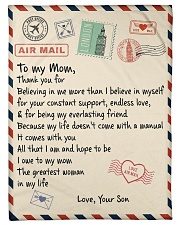 AIR MAIL
To my Mom,
Thank you for
Believing in me more than I believe in myself
for your constant support, endless love,
& for being my everlasting friend
Because my life doesn't come with a manual
It comes with you
All that I am and hope to be
I owe to my mom
The greatest woman
in my life
Love, Your Son